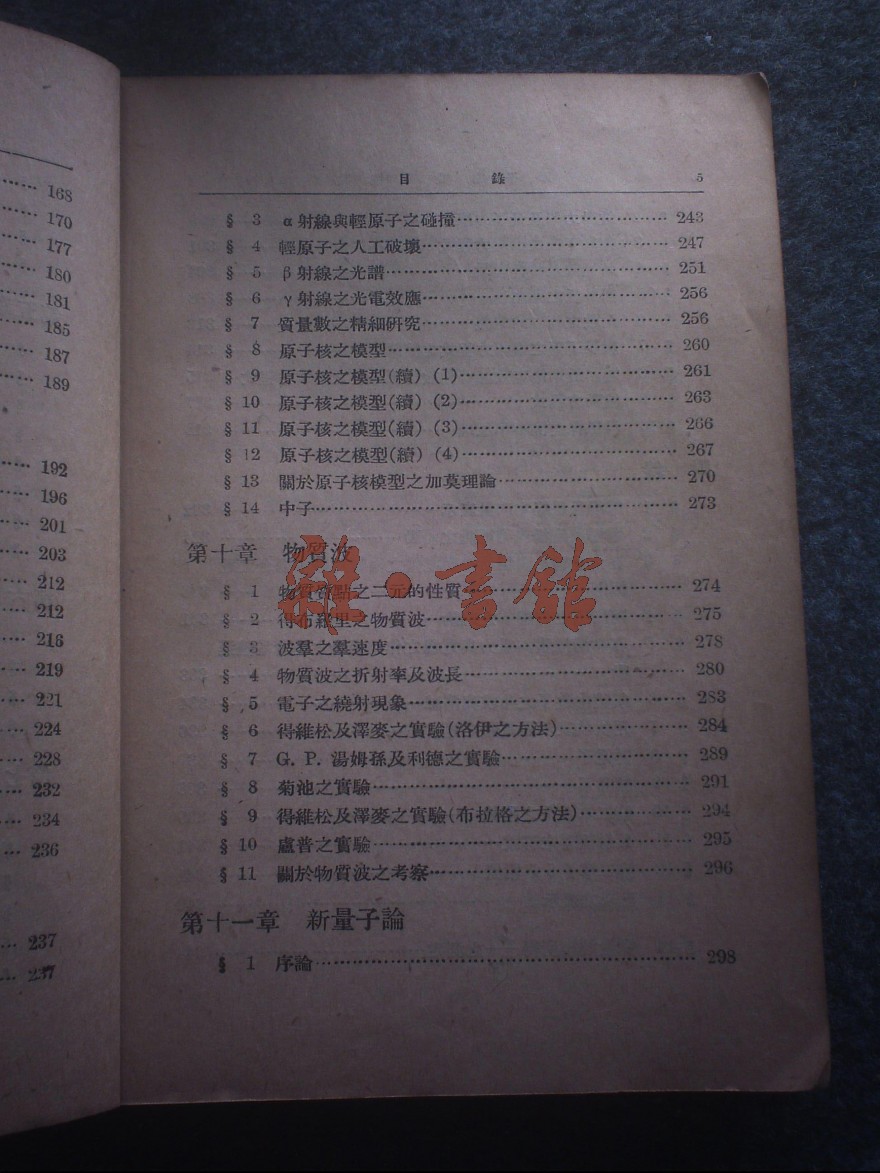 168
170
177
180
181
185
187
189
192
196
201
203
212
212
216
219
221
224
228
232
234
236
237
237
目 錄 5
§ 3 α射線與輕原子之碰撞 243
§ 4 輕原子之人工破壞 247
§ 5 β射線之光譜 251
§ 6 γ射線之光電效應 256
§ 7 質量數之精細研究 256
§ 8 原子核之模型 260
§ 9 原子核之模型(續) (1) 261
§ 10 原子核之模型(續) (2) 263
§ 11 原子核之模型(續) (3) 266
§ 12 原子核之模型(續) (4) 267
§ 13 關於原子核模型之加莫理論 270
§ 14 中子 273
第十章 物質波
§ 1 物質質點之二元的性質 274
§ 2 得布羅里之物質波 275
§ 3 波羣之羣速度 278
§ 4 物質波之折射率及波長 280
§ 5 電子之繞射現象 283
§ 6 得維松及澤麥之實驗(洛伊之方法) 284
§ 7 G. P. 湯姆孫及利德之實驗 289
§ 8 菊池之實驗 291
§ 9 得維松及澤麥之實驗(布拉格之方法) 294
§ 10 盧普之實驗 295
§ 11 關於物質波之考察 296
第十一章 新量子論
§ 1 序論 298
書館